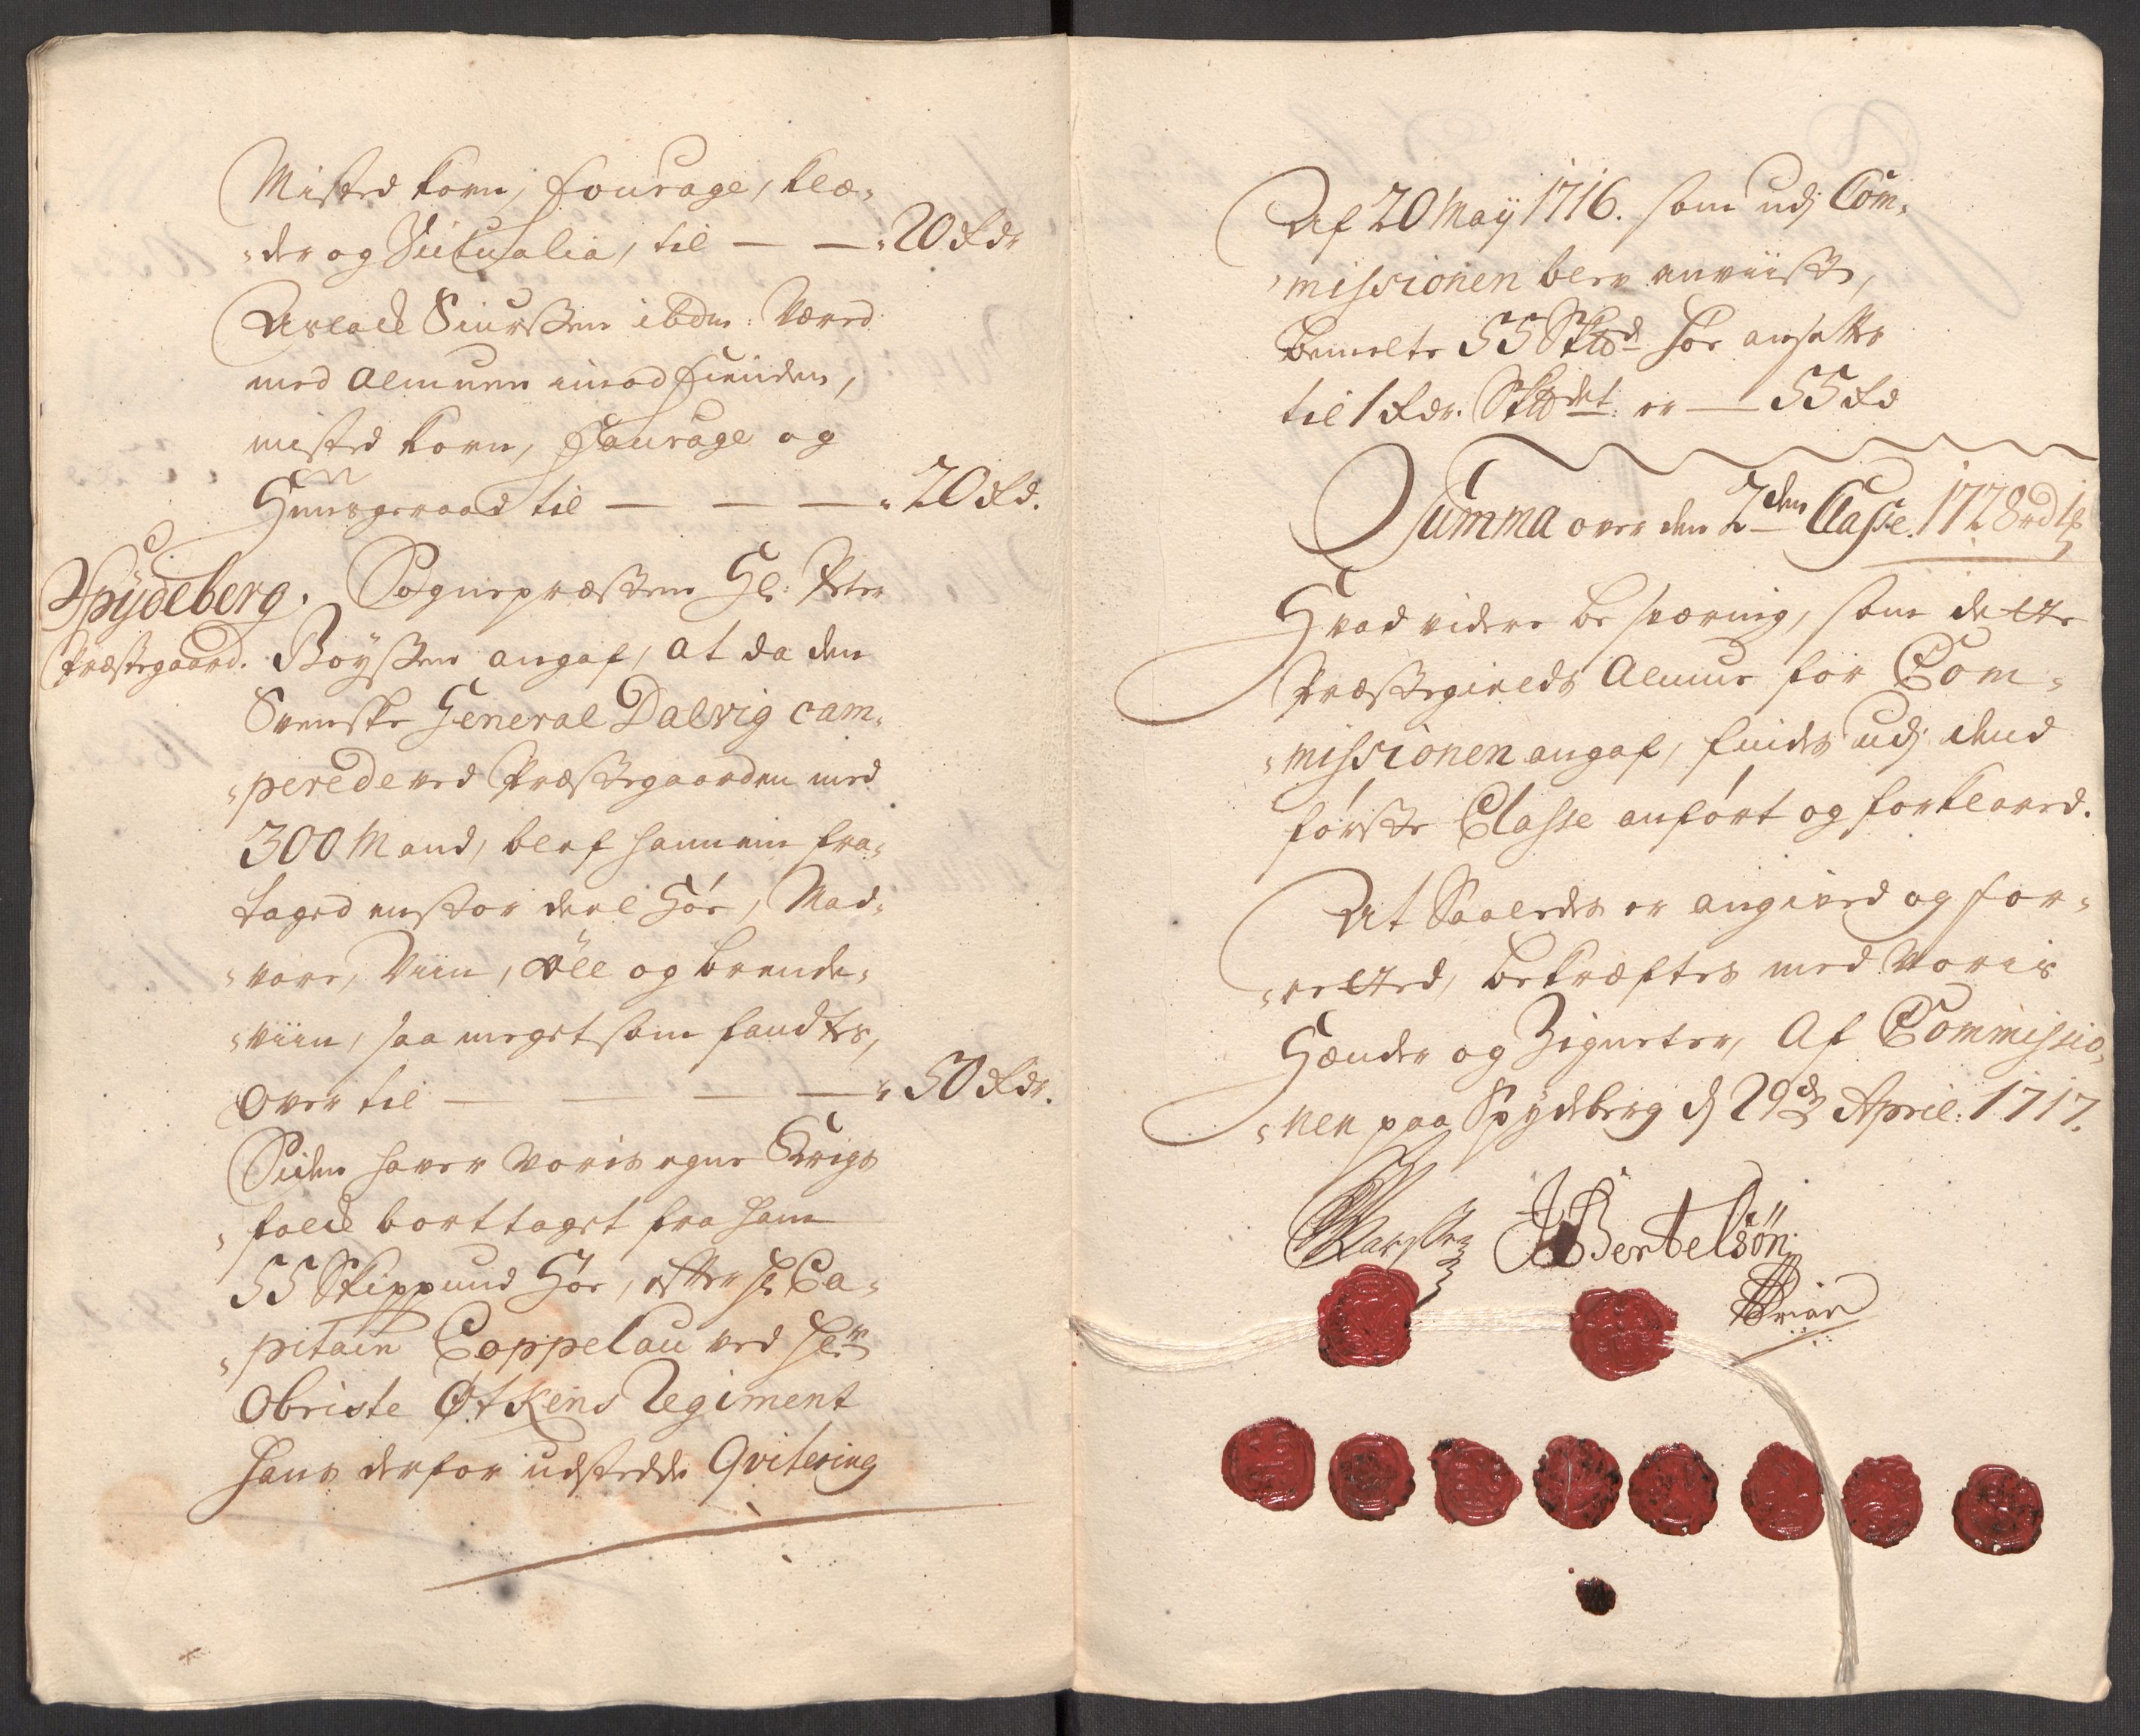 Misted korn, fourage, klæ-
-der og Victualia, til — — 20 Rdr
Aslack Siurssen ibdm: Været
med Almuen imod fienden,
misted korn, fourage og
Huusgeraad til — — — 20 Rd.
Spydeberg. Sognepræsten Hl: Peter
Præstegaard. Boyssen angaf, at da den
Svenske General Dalvig cam-
-perede ved Præstegaarden med
300 Mand, blef hannem fra-
taged en stor deel Høe, Mad-
-vare, Viin, Øll og brende-
-viin, saa meget som fandtes,
over til — — — — 50 Rdr.
Siden haver voris egne Krigs
-folck borttaget fra ham
55 Skippund Høe, efter Hr Ca-
-pitain Coppelau ved Hl.
Obriste Øtkens Regiment
hans derfor udstedde Qvitering
Af 20 Maÿ 1716. som udj Com-
-missionen blev anviist,
bemelte 55 Skpd Høe ansettes
til 1 Rdr. Skpdet er — 55 Rd
Summa over den 2den Classe. 1728 rd
Hvad videre besværing, som dette
Præstegields Almue for Com-
-missionen angaf, findes udj dend
første Classe anført og forklared.
At Saaledes er angived og for-
-retted, bekræftes med Voris
Hænder og Zigneter, Af Commissio-
-nen paa Spydeberg d 29de April: 1717.
JBertelsøn